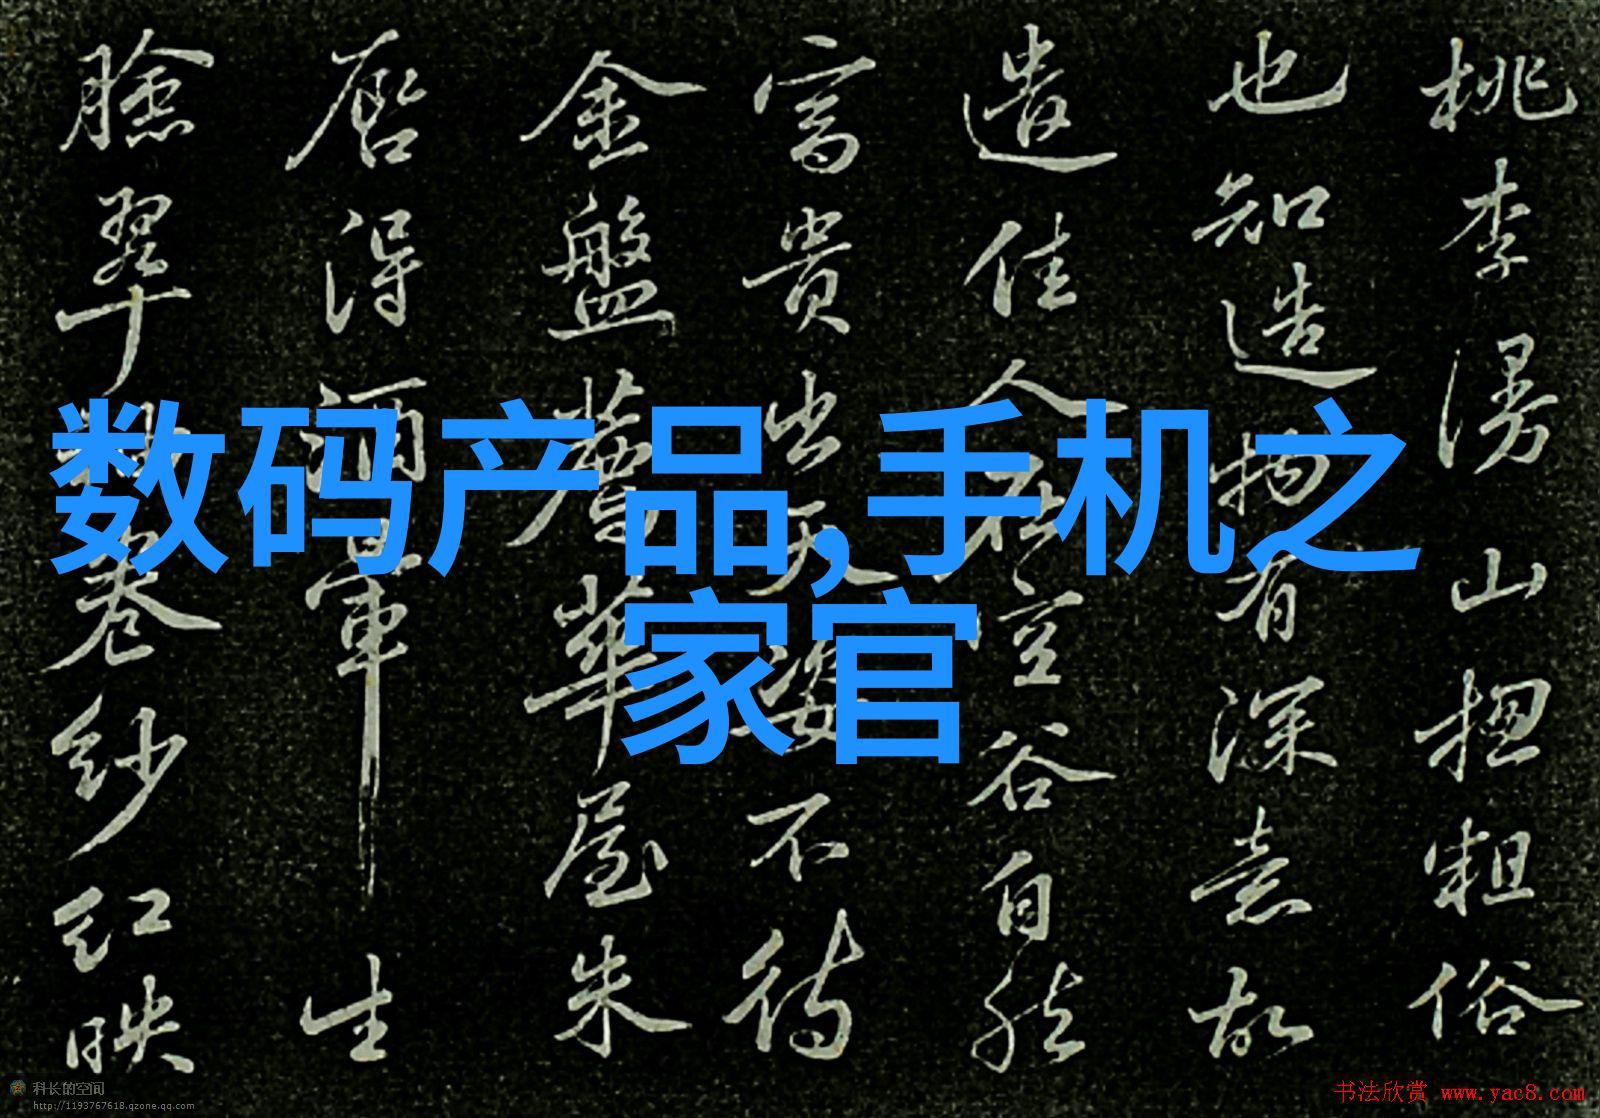 桃李漫山揔粗俗
也知造物有深意故
遣佳人在空谷自然
富貴出天姿不待
金盤薦華屋朱
唇得酒暈生
臉翠袖卷紗紅映
数码产品,手机之
家官
科长的空间
http://1193767618.qzone.qq.com
书法欣赏 www.yac8.com